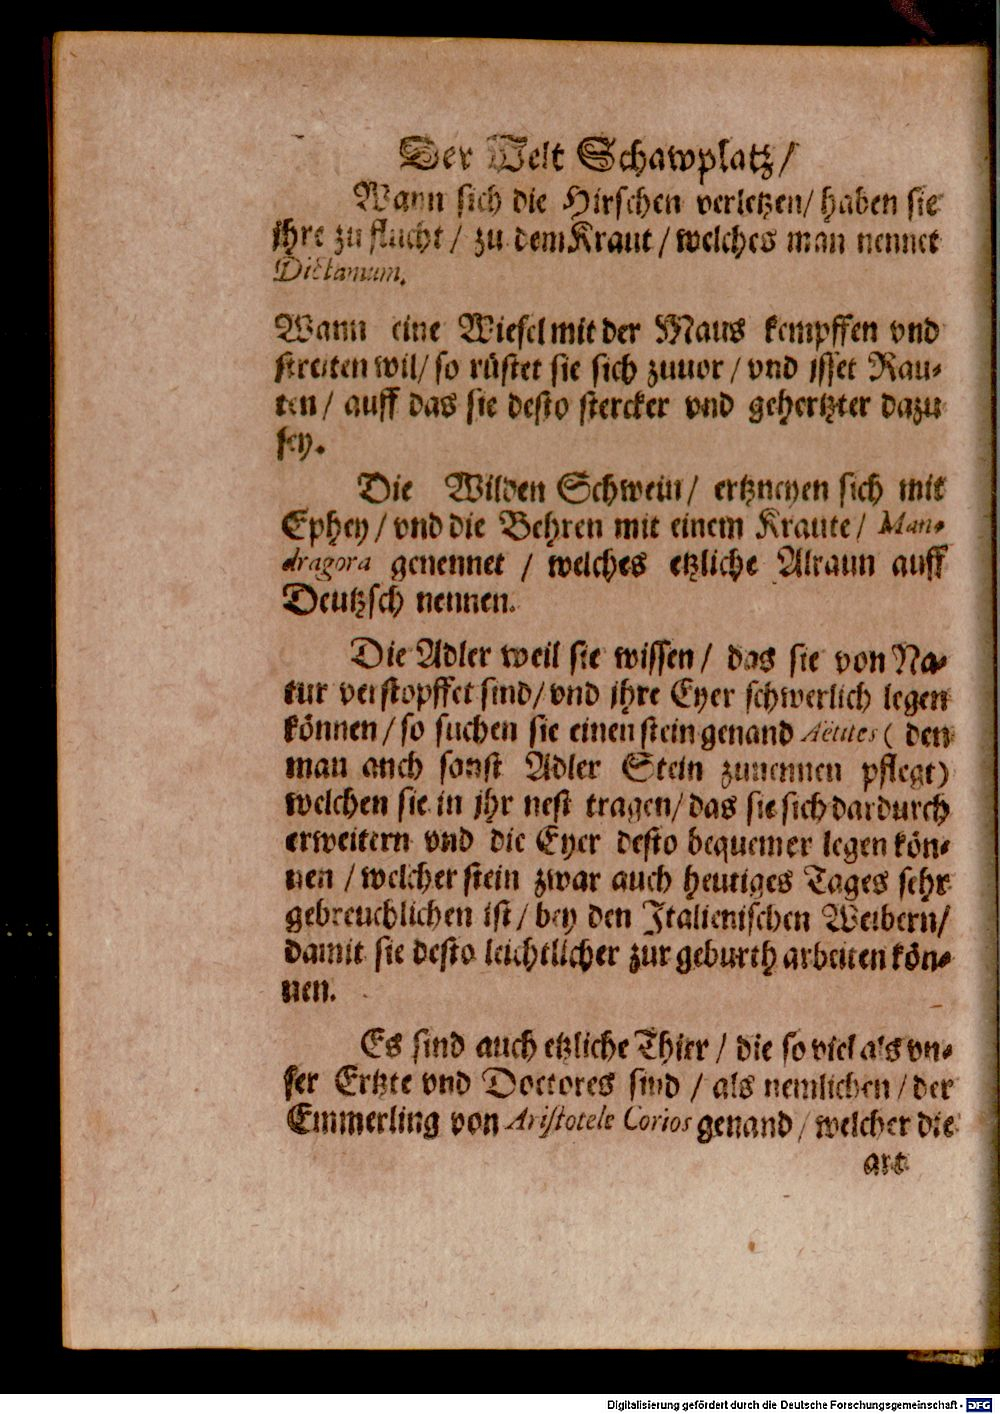 Der Welt Schawplatz/
Wann sich die Hirschen verletzen/ haben sie
jhre zu flucht / zu dem Kraut / welches man nennet
Dictamum.
Wann eine Wiesel mit der Maus kempffen vnd
streiten wil/ so rüstet sie sich zuuor / vnd jsset Rau-
ten / auff das sie desto stercker vnd gehertzter dazu
sey.
Die Wilden Schwein/ ertzneyen sich mit
Ephey / vnd die Behren mit einem Kraute / Man-
dragora genennet / welches etzliche Alraun auff
Deutzsch nennen.
Die Adler weil sie wissen / das sie von Na-
tur verstopffet sind/ vnd jhre Eyer schwerlich legen
können / so suchen sie einen stein genand Aëtites ( den
man auch sonst Adler Stein zunennen pflegt)
welchen sie in jhr nest tragen/ das sie sich dardurch
erweitern vnd die Eyer desto bequemer legen kön-
nen / welcher stein zwar auch heutiges Tages sehr
gebreuchlichen ist / bey den Italienischen Weibern/
damit sie desto leichtlicher zur geburth arbeiten kön-
nen.
Es sind auch etzliche Thier / die so viel als vn-
ser Ertzte vnd Doctores sind / als nemlichen / der
Emmerling von Aristotele Corios genand / welcher die
art
Digitalisierung gefördert durch die Deutsche Forschungsgemeinschaft - DFG